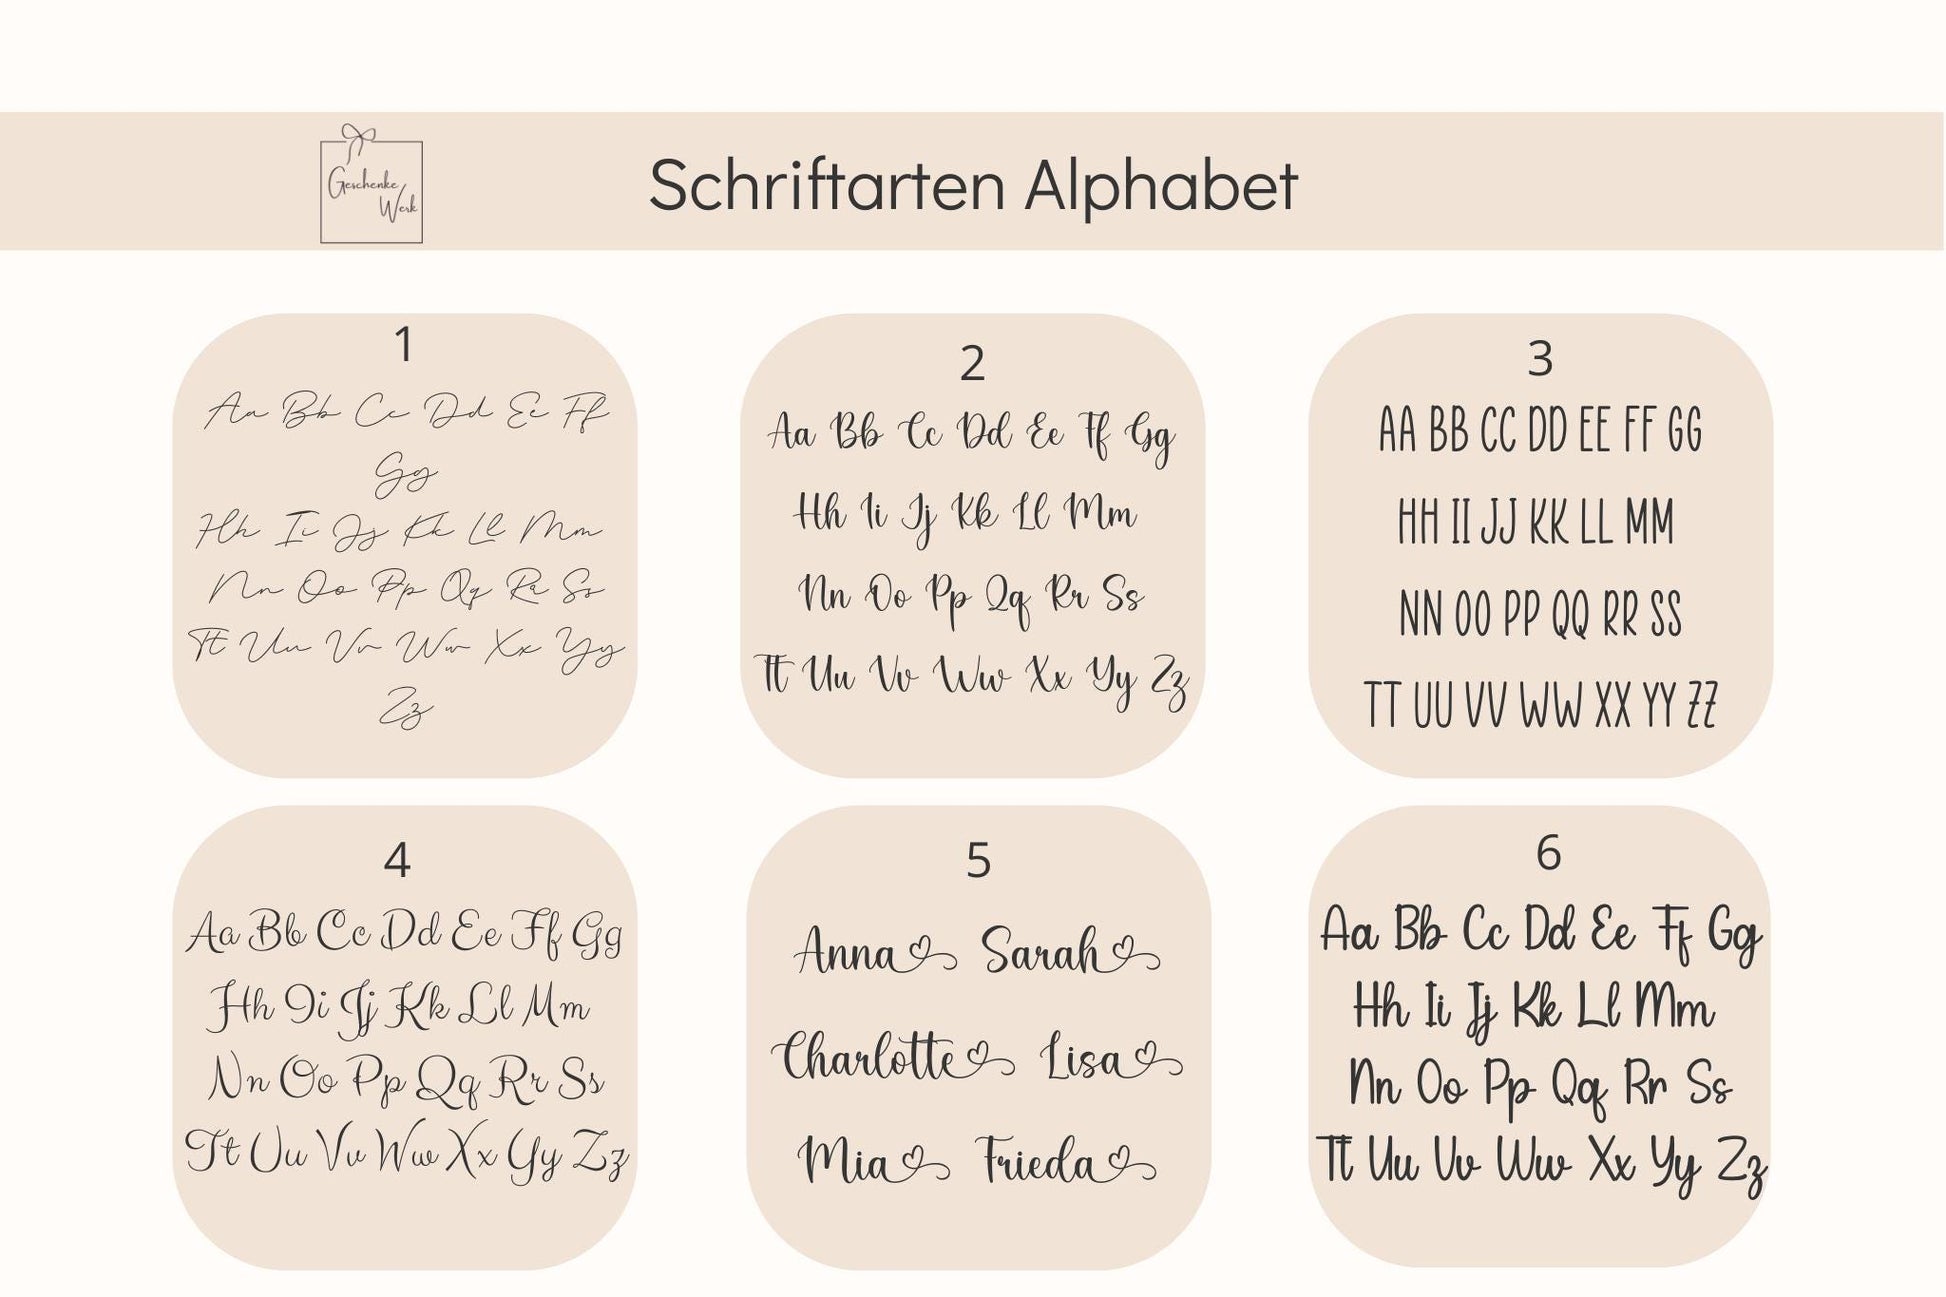 Geschenke
Werk
Schriftarten Alphabet
1
Aa Bb Cc Dd Ee Ff
Gg
Hh Ii Jj Kk Ll Mm
Nn Oo Pp Qq Rr Ss
Tt Uu Vv Ww Xx Yy
Zz
2
Aa Bb Cc Dd Ee Ff Gg
Hh Ii Jj Kk Ll Mm
Nn Oo Pp Qq Rr Ss
Tt Uu Vv Ww Xx Yy Zz
3
AA BB CC DD EE FF GG
HH II JJ KK LL MM
NN OO PP QQ RR SS
TT UU VV WW XX YY ZZ
4
Aa Bb Cc Dd Ee Ff Gg
Hh Ii Jj Kk Ll Mm
Nn Oo Pp Qq Rr Ss
Tt Uu Vv Ww Xx Yy Zz
5
Anna Sarah
Charlotte Lisa
Mia Frieda
6
Aa Bb Cc Dd Ee Ff Gg
Hh Ii Jj Kk Ll Mm
Nn Oo Pp Qq Rr Ss
Tt Uu Vv Ww Xx Yy Zz